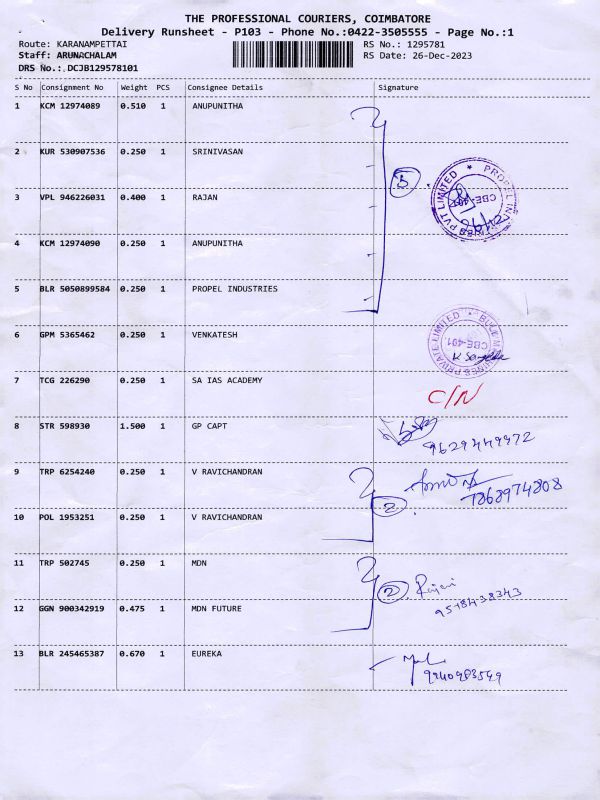 THE PROFESSIONAL COURIERS, COIMBATORE
Delivery Runsheet - P103 - Phone No.:0422-3505555 - Page No.:1
Route: KARANAMPETTAI RS No.: 1295781
Staff: ARUNACHALAM RS Date: 26-Dec-2023
DRS No.:.DCJB129578101
S No Consignment No Weight PCS Consignee Details Signature
1 KCM 12974089 0.510 1 ANUPUNITHA
2 KUR 530907536 0.250 1 SRINIVASAN
3 VPL 946226031 0.400 1 RAJAN
5
PROPEL IN
ES PVT LIMITED ★
CBE-401
4 KCM 12974090 0.250 1 ANUPUNITHA
5 BLR 5050899584 0.250 1 PROPEL INDUSTRIES
6 GPM 5365462 0.250 1 VENKATESH
PRIVATE LIMITED ★
CBE-401.
7 TCG 226290 0.250 1 SA IAS ACADEMY
C/N
8 STR 598930 1.500 1 GP CAPT
9629449972
9 TRP 6254240 0.250 1 V RAVICHANDRAN
7868974808
2
10 POL 1953251 0.250 1 V RAVICHANDRAN
11 TRP 502745 0.250 1 MDN
2 Rajani
9518438343
12 GGN 900342919 0.475 1 MDN FUTURE
13 BLR 245465387 0.670 1 EUREKA
9940983549